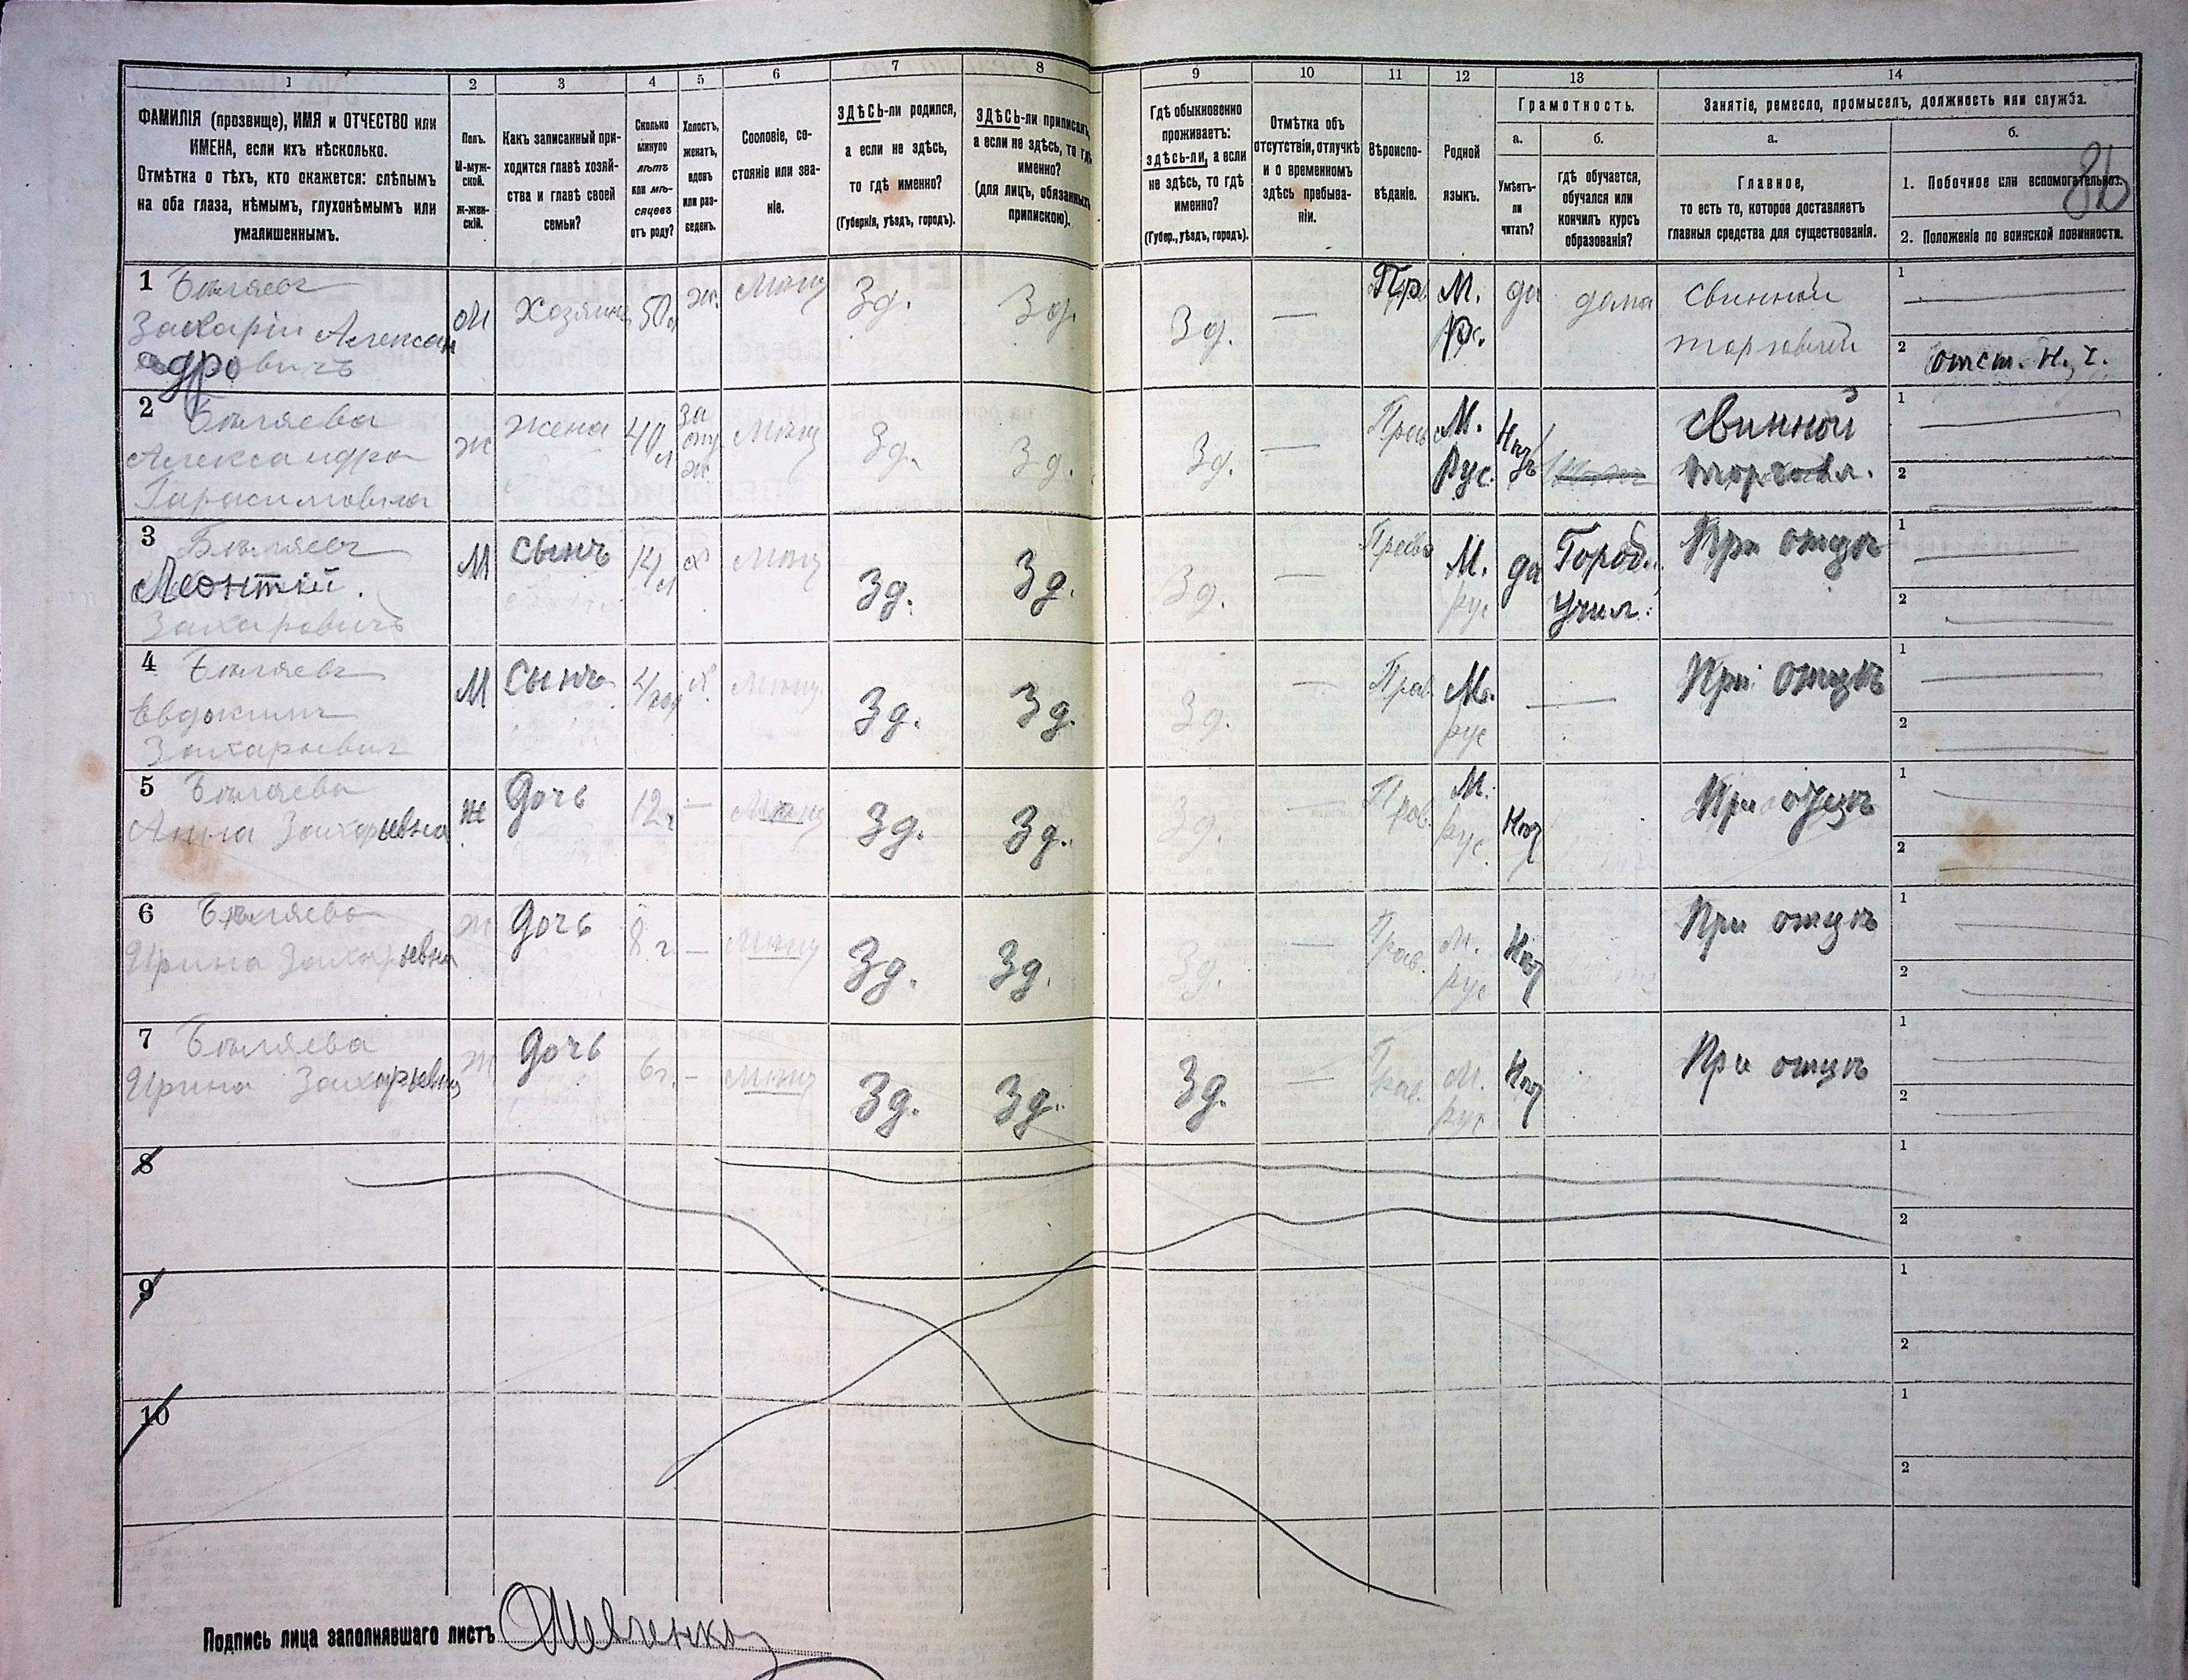 1
2
3
4
5
6
7
8
9
10
11
12
13
14
ФАМИЛІЯ (прозвище), ИМЯ и ОТЧЕСТВО или
ИМЕНА, если ихъ нѣсколько.
Отмѣтка о тѣхъ, кто окажется: слѣпымъ
на оба глаза, нѣмымъ, глухонѣмымъ или
умалишеннымъ.
Полъ.
М-муж-
ской.
Ж-жен-
скій.
Какъ записанный при-
ходится главѣ хозяй-
ства и главѣ своей
семьи?
Сколько
минуло
лѣтъ
или мѣ-
сяцевъ
отъ роду?
Холостъ,
женатъ,
вдовъ
или раз-
веденъ.
Сословіе, со-
стояніе или зва-
ніе.
ЗДѢСЬ-ли родился,
а если не здѣсь,
то гдѣ именно?
(Губернія, уѣздъ, городъ).
ЗДѢСЬ-ли приписанъ,
а если не здѣсь, то гдѣ
именно?
(для лицъ, обязанныхъ
припискою).
Гдѣ обыкновенно
проживаетъ:
здѣсь-ли, а если
не здѣсь, то гдѣ
именно?
(Губер., уѣздъ, городъ).
Отмѣтка объ
отсутствіи, отлучкѣ
и о временномъ
здѣсь пребыва-
ніи.
Вѣроиспо-
вѣданіе.
Родной
языкъ.
Грамотность.
а.
Умѣетъ-
ли
читать?
б.
гдѣ обучается,
обучался или
кончилъ курсъ
образованія?
Занятіе, ремесло, промыселъ, должность или служба.
а.
Главное,
то есть то, которое доставляетъ
главныя средства для существованія.
б.
1. Побочное или вспомогательное.
2. Положеніе по воинской повинности.
1 Бѣляевъ
Захарій Алексан
дровичъ
М
Хозяинъ
50 л
ж.
Мѣщ
Зд.
Зд.
Зд.
—
Пр
М.
Рс.
да
дома
свинной
торговлей
1
2 отст. н. ч.
2 Бѣляева
Александра
Гарасимовна
ж
жена
40 л
за
му
ж.
Мѣщ
Зд.
Зд.
Зд.
—
Прав
М.
Рус.
Нѣтъ
свинной
торговл.
1
2
3 Бѣляевъ
Леонтій.
Захаровичъ
М
Сынъ
14 л
х
Мѣщ
Зд.
Зд.
Зд.
—
Прав
М.
рус
да
Город.
Учил.
При отцѣ
1
2
4 Бѣляевъ
Евдокимъ
Захарьевич
М
Сынъ
4 год
х
Мѣщ.
Зд.
Зд.
Зд.
—
Прав.
М.
рус
—
При отцѣ
1
2
5 Бѣляева
Анна Захарьевна
ж
Дочь
12 г
—
Мѣщ
Зд.
Зд.
Зд.
—
Прав.
М.
рус.
Нѣт
При отцѣ
1
2
6 Бѣляева
Ирина Захарьевна
ж
Дочь
8 г.
—
Мѣщ
Зд.
Зд.
Зд.
—
Прав.
М.
рус
Нѣт
При отцѣ
1
2
7 Бѣляева
Ирина Захарьевна
ж
Дочь
6 г.
—
Мѣщ
Зд.
Зд.
Зд.
—
Прав.
М.
рус
Нѣт
При отцѣ
1
2
8
1
2
9
1
2
10
1
2
Подпись лица заполнявшаго листъ Шевченко